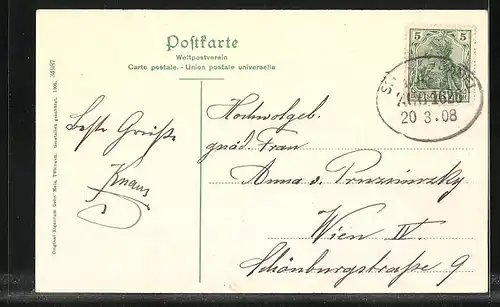 Postkarte
Weltpostverein
Carte postale. - Union postale universelle
34987
Original Eigentum Gebr. Metz, Tübingen. Gesetzlich geschützt. 1906.
5 5
20 3.08
Beste Grüße
Knaus
Hochwolgeb.
gnäd. Frau
Anna v. Pruszinszky
Wien IV.
Schönburgstraße 9